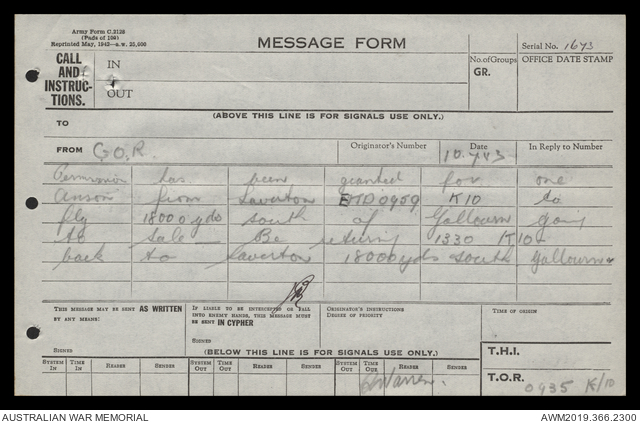 Army Form C.2128
(Pads of 100)
Reprinted May, 1942—a.w. 25,000
MESSAGE FORM
Serial No. 1673
CALL AND INSTRUCTIONS.
IN
OUT
No. of Groups
GR.
OFFICE DATE STAMP
(ABOVE THIS LINE IS FOR SIGNALS USE ONLY.)
TO
FROM G.O.R.
Originator's Number
Date
10.7.43
In Reply to Number
Permission has been granted for one
Anson from Laverton ETD 0959 K10 to
fly 18000 yds south of Yallourn going
to Sale Be returing 1330 K10
back to Laverton 18000 yds south Yallourn
THIS MESSAGE MAY BE SENT AS WRITTEN
BY ANY MEANS.
SIGNED
IF LIABLE TO BE INTERCEPTED OR FALL
INTO ENEMY HANDS, THIS MESSAGE MUST
BE SENT IN CYPHER
SIGNED
ORIGINATOR'S INSTRUCTIONS
DEGREE OF PRIORITY
TIME OF ORIGIN
(BELOW THIS LINE IS FOR SIGNALS USE ONLY.)
SYSTEM IN
TIME IN
READER
SENDER
SYSTEM OUT
TIME OUT
READER
SENDER
SYSTEM OUT
TIME OUT
READER
SENDER
T.H.I.
T.O.R. 0935 K/10
Warren.
AUSTRALIAN WAR MEMORIAL
AWM2019.366.2300